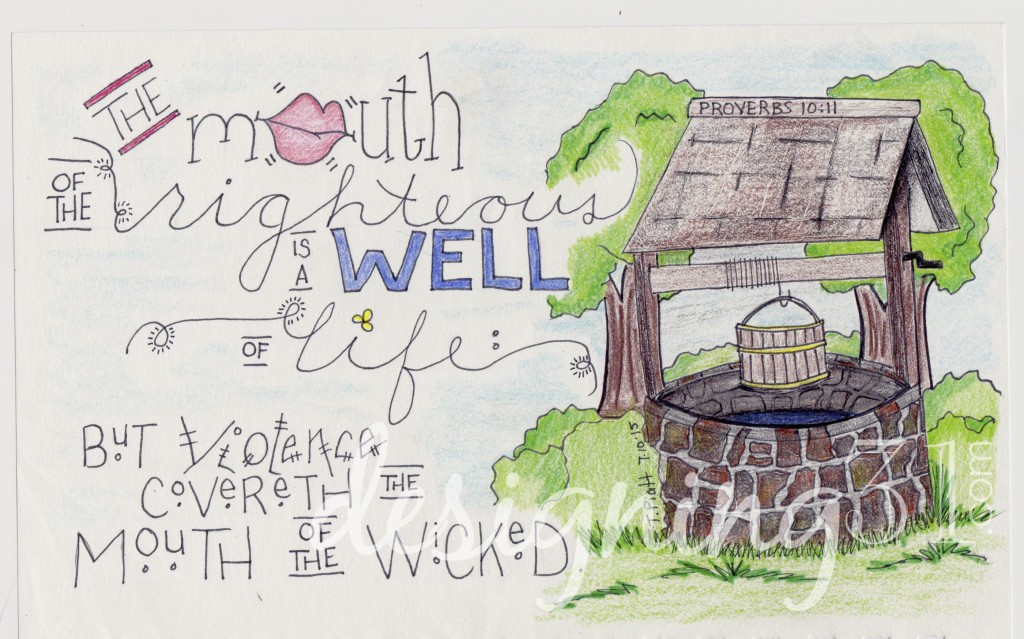 THE mouth
OF THE righteous
IS A WELL
OF life:
BUT ViOLeNce
COVEReTH THE
MOUTH OF THE WiCKeD.
PROVERBS 10:11
T. Piatt 7.10.15
designing31.com